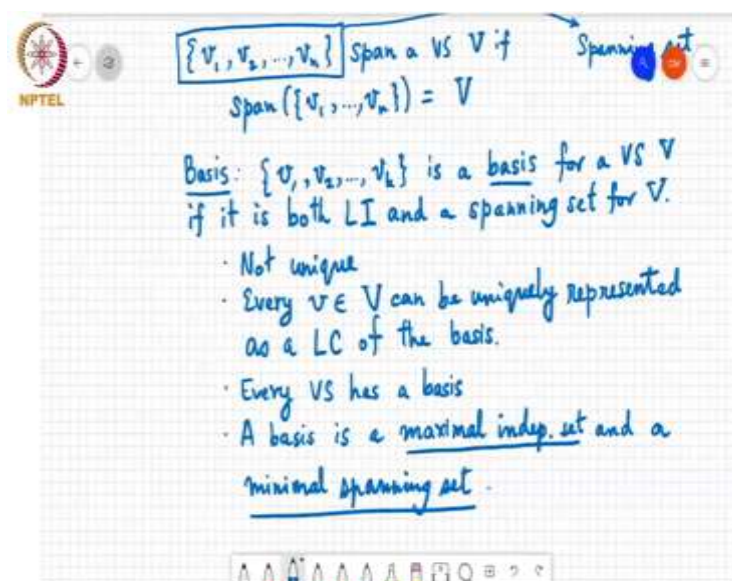 {v₁, v₂, ..., vₙ} span a VS V if Spanning set
NPTEL
span({v₁, ..., vₙ}) = V
Basis: {v₁, v₂, ..., vₖ} is a basis for a VS V
if it is both LI and a spanning set for V.
· Not unique
· Every v ∈ V can be uniquely represented
as a LC of the basis.
· Every VS has a basis
· A basis is a maximal indep. set and a
minimal spanning set.